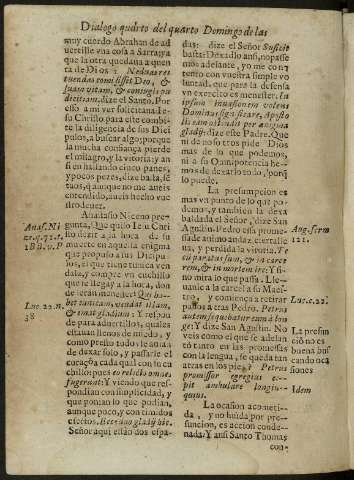 Dialogo quarto del quarto Domingo de las
muy cuerdo Abrahan de ad
uertille vna cosa a Sarra, ya
que la otra quedaua a quen
ta de Dios
tuendas comississet Deo, &
suam vitam, & coniugis pu
dicitiam, dize el Santo. Por
esso a mi ver solicitaua Ie-
su Christo para este comba-
te la diligencia de sus Disci
pulos, a buscar algo; porque
la mucha confiança pierde
el milagro, y la vitoria; y an
si en hallando cinco panes,
y pocos pezes, dize basta, sê
taos, q aunque no me aueis
entendido, aueis hecho vue
stro deuer.
Anastasio Niceno pre-
gunta, Que quiso Iesu Chri
sto dezir a la hora de su
muerte en aquella enigma
que propuso a sus Discipu-
los, el que tiene tunica ven
dala, y compre vn cuchillo
que se llega ya la hora, don
de le eran menester? Qui ha-
bet tunicam, vendat illam,
& emat gladium: Y respon
de para aduertillos, quales
estauan llenos de miedo, y
como presto todos le auian
de dexar solo, y passarle el
coraçon cada qual con su cu
chillo: pues eo relicto omnes
fugerunt: Y viendo que res-
pondian con simplicidad, y
que ponian lo que podian,
aunque poco, y con timidos
efectos. Ecce duo gladij hic.
Señor aqui están dos espa-
Anas. Ni
ce. q. 72. t.
Luc. 22. n.
38
das: dize el Señor Sufficit
basta: Dexadlo ansi, no passe
mos adelante, yo me con-
tento con vuestra simple vo
luntad, que para la defensa
vn exercito es menester. In
ipsum inuasionem volens
Dominus significare, Aposto
gladij: dize este Padre. Que
ni de nosotros pide Dios
mas de lo que podemos,
ni a su Omnipotencia he-
mos de dexarlo todo, porq
lo puede.
La presumpcion es
mas vn punto de lo que po-
demos, y tambien la dexa
baldada el Señor, dize San
Agustin. Pedro essa prome-
ssa de animo andaz, eterralle
ha, y perdida la vitoria. Te
cũ paratus sum, & in carce
rem, & in mortem ire: Y fi-
no mira lo que passa. Lle-
uanle a la carcel a su Mae-
stro, y comiença a retirar
passos atras Pedro. Petrus
autem sequebatur eum à lon
ge: Y dize San Agustin. No
veis como el que se adelan
tó tanto en las promessas
con la lengua, se queda tan
atras en los pies? Petrus
promissor egregius cœ-
pit ambulare longin-
quius.
La ocasion acometi-
da, y no huida por pre-
suncion, es accion conde-
nada: Y ansi Santo Thomas
con-
Aug. serm
121.
Luc. c. 22.
La presun
ció no es
buena bus
cando oca
siones
Idem